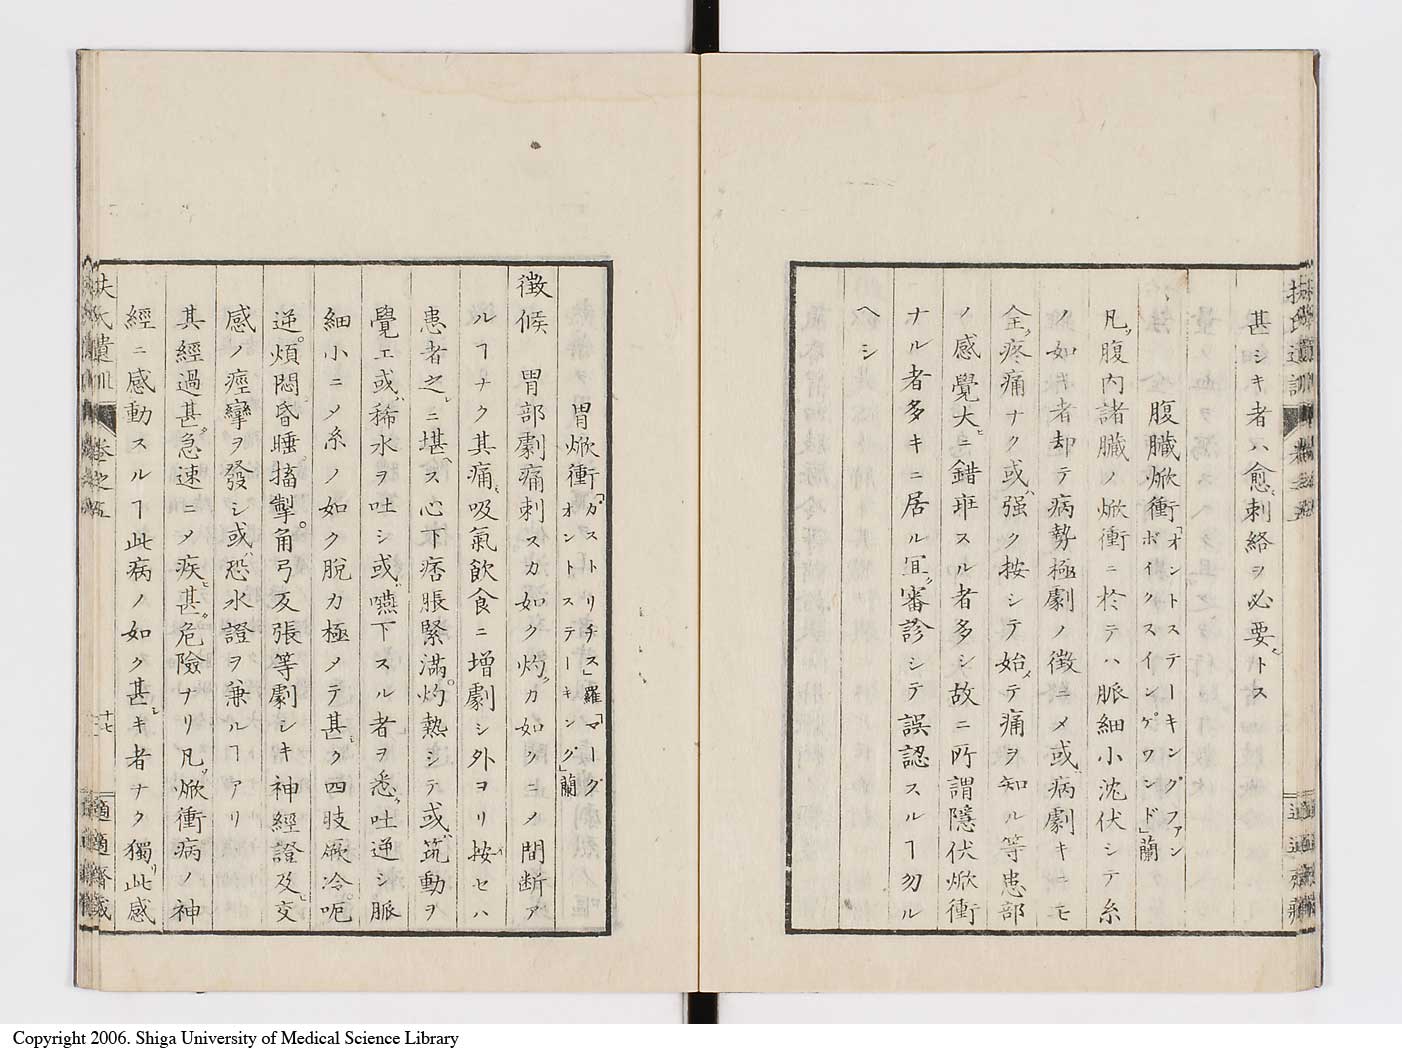 甚シキ者ハ愈刺絡ヲ必要トス
腹臓焮衝「オントステーキングファン
ボイクスインゲワンド」蘭
凡腹内諸臓ノ焮衝ニ於テハ脈細小沈伏シテ糸
ノ如キ者却テ病勢極劇ノ徴ニメ或病劇キニモ
全疼痛ナク或强ク按シテ始テ痛ヲ知ル等患部
ノ感覺大ニ錯雜スル者多シ故ニ所謂隱伏焮衝
ナル者多キニ居ル冝審診シテ誤認スルヿ勿ル
ヘシ
胃焮衝「ガストリチス」羅「マーグ
オントステーキング」蘭
徴候 胃部劇痛刺スカ如ク灼カ如クニメ間断ア
ルヿナク其痛吸氣飲食ニ增劇シ外ヨリ按セハ
患者之ニ堪ヘス心下痞脹緊滿灼熱シテ或筑動ヲ
覺エ或稀水ヲ吐シ或嚥下スル者ヲ悉吐逆シ脈
細小ニメ糸ノ如ク脫力極メテ甚ク四肢厥冷呃
逆煩悶昏睡搐掣角弓反張等劇シキ神經證及交
感ノ痙攣ヲ發シ或恐水證ヲ兼ルヿアリ
其經過甚急速ニメ疾甚危險ナリ凡焮衝病ノ神
經ニ感動スルヿ此病ノ如ク甚キ者ナク獨此感
扶氏遺訓 卷之五
十七
適適齋藏
Copyright 2006. Shiga University of Medical Science Library